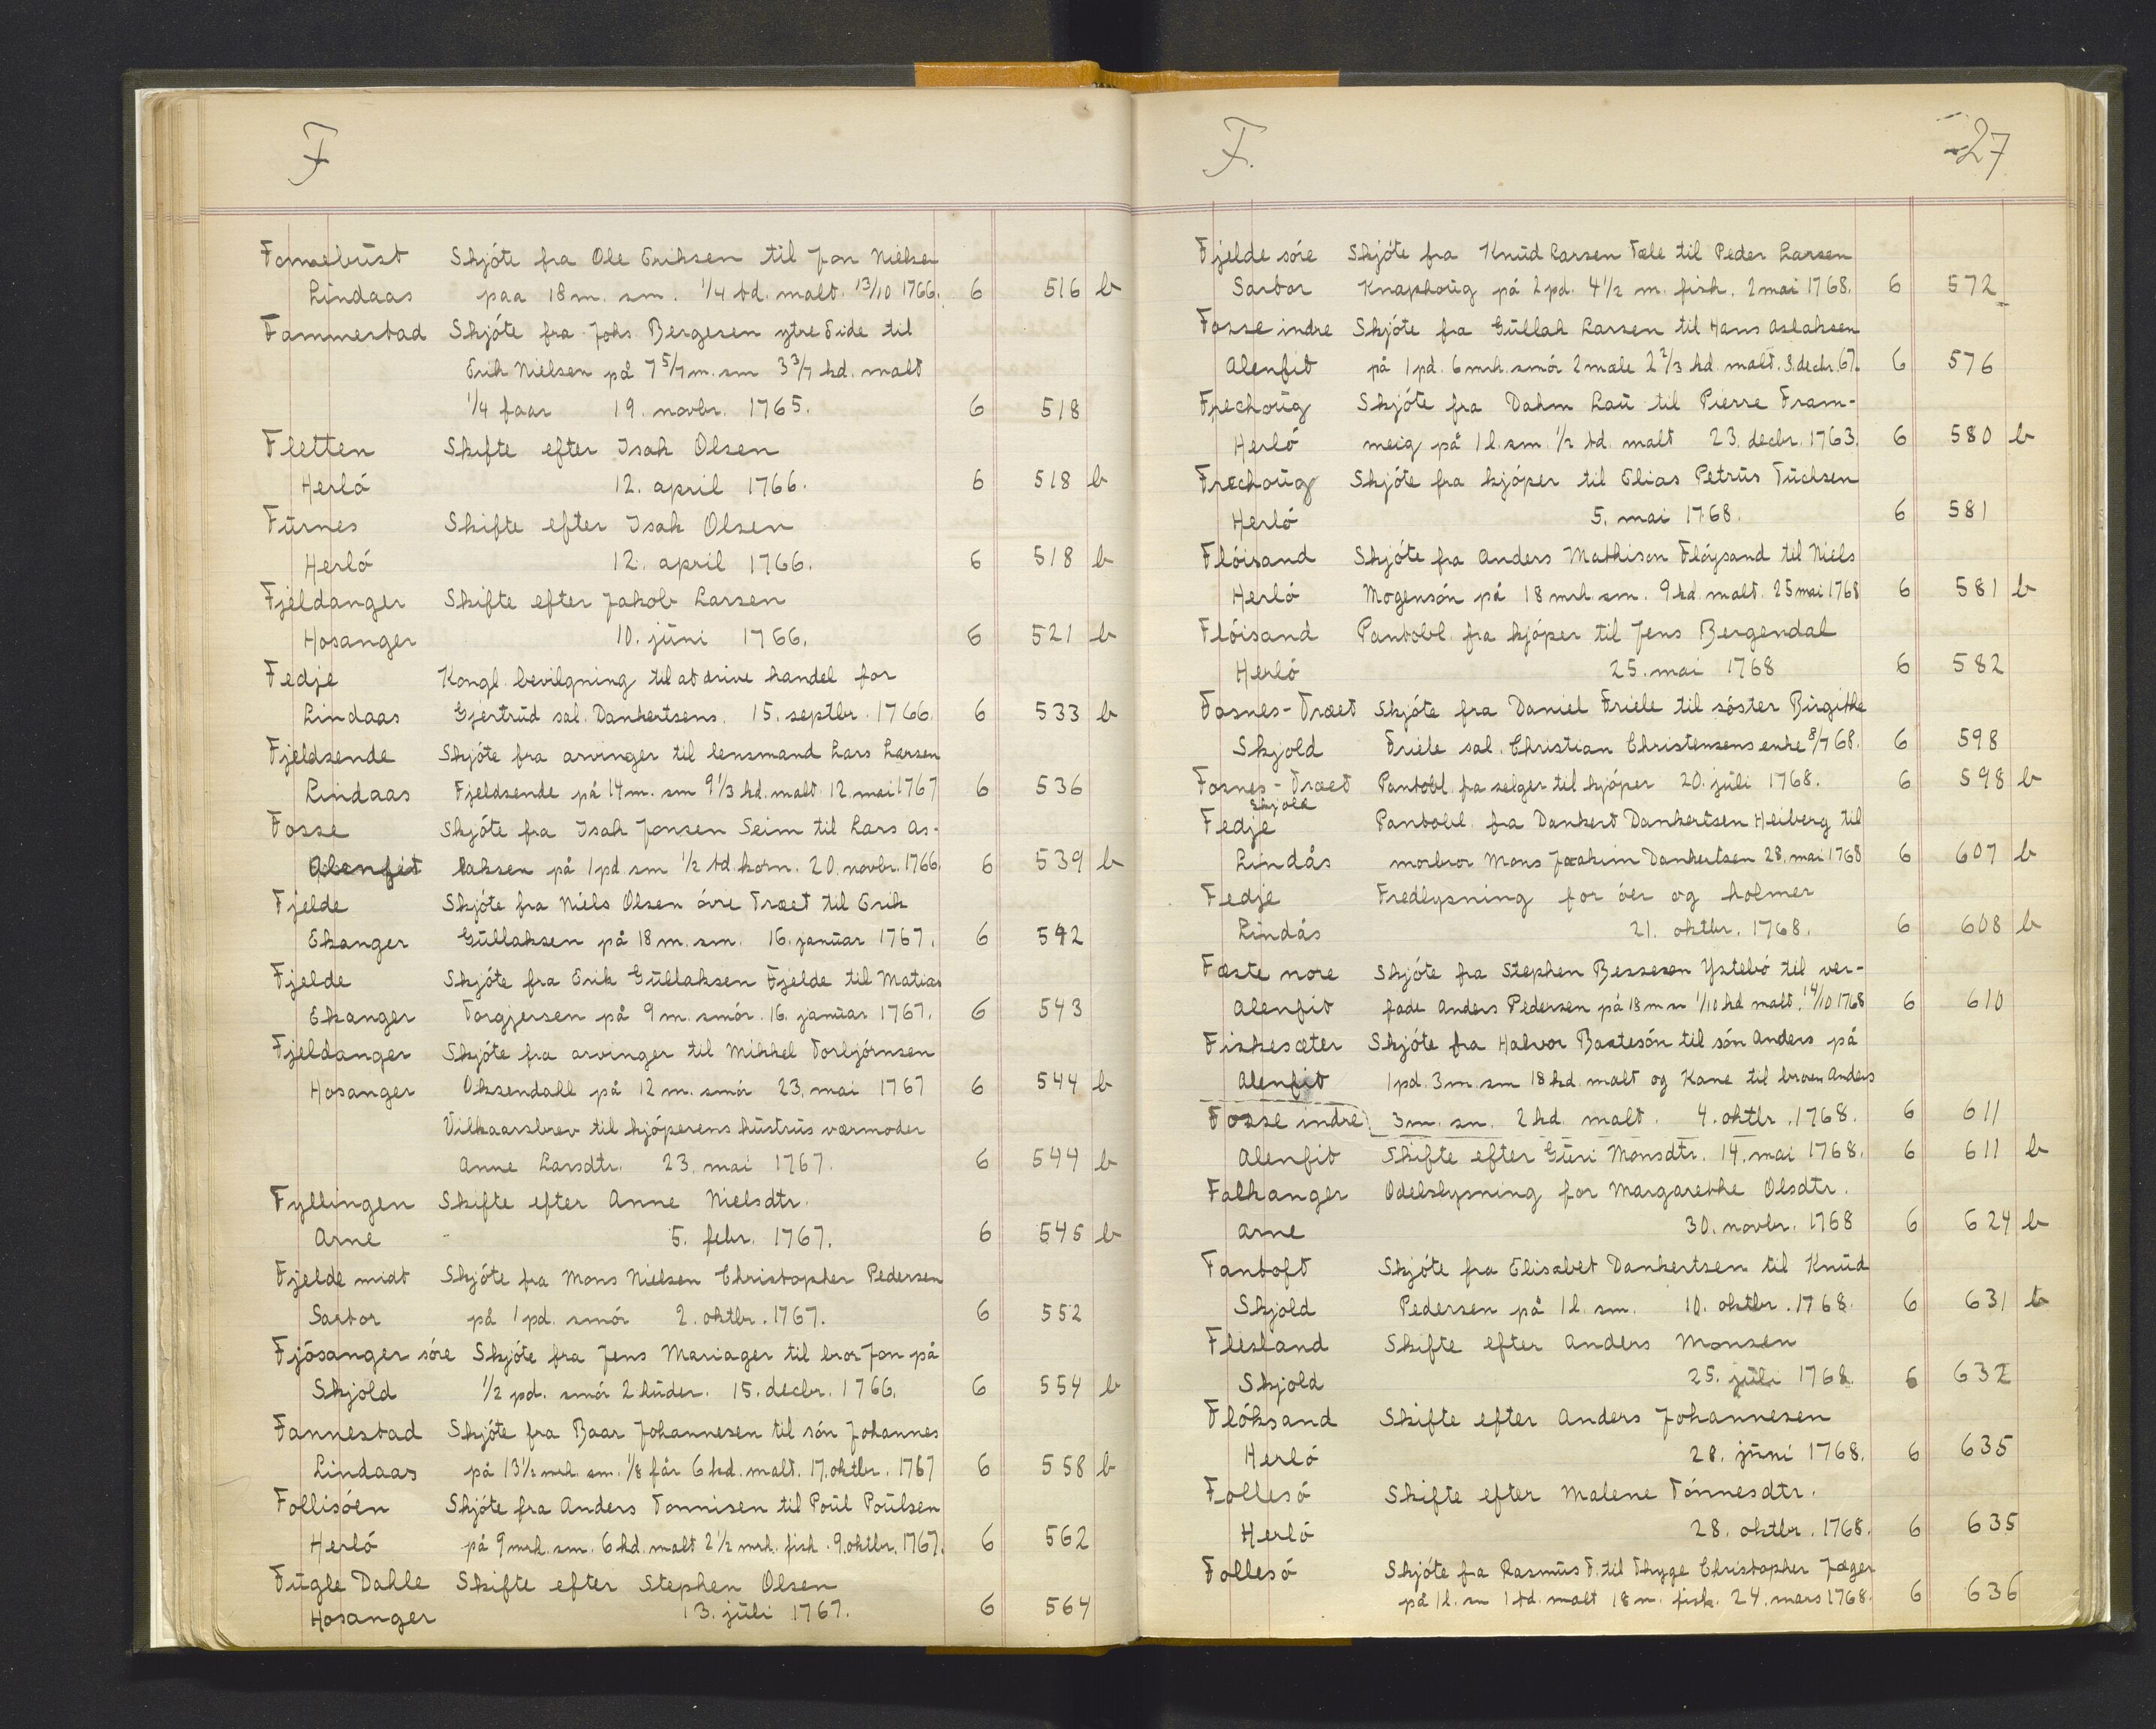 F
Fonnebust Skjóte fra Ole Eriksen til Jon Nielsen
Lindaas paa 18 m. sm. 1/4 td. malt. 13/10 1766. 6 516 b
Fammestad Skjóte fra Johs Bergesen ytre Eide til
Erik Nielsen på 7 5/7 m. sm 3 3/7 kd. malt
1/4 faar 19. novbr. 1765. 6 518
Fletten Skifte efter Isak Olsen
Herló 12. april 1766. 6 518 b
Furnes Skifte efter Isak Olsen
Herló 12. april 1766. 6 518 b
Fjeldanger Skifte efter Jakob Larsen
Hosanger 10. juni 1766. 6 521 b
Fedje Kongl. bevilgning til at drive handel for
Lindaas Gjertrud sal. Dankertsens. 15. septbr. 1766. 6 533 b
Fjeldsende Skjóte fra arvinger til lensmand Lars Larsen
Lindaas Fjeldsende på 14 m. sm 9 1/3 kd. malt 12. mai 1767 6 536
Fosse Skjóte fra Isak Jonsen Seim til Lars As-
Alenfit laksen på 1 pd sm 1/2 td. korn. 20. novbr. 1766. 6 539 b
Fjelde Skjóte fra Niels Olsen óvre Træet til Erik
Ekanger Gullaksen på 18 m. sm. 16. januar 1767. 6 542
Fjelde Skjóte fra Erik Gullaksen Fjelde til Matias
Ekanger Torgjersen på 9 m. smór. 16. januar 1767. 6 543
Fjeldanger Skjóte fra arvinger til Mikkel Torbjórnsen
Hosanger Oksendahl på 12 m. smór 23. mai 1767 6 544 b
Vilkaarsbrev til kjóperens hustrus værmoder
Anne Larsdtr. 23. mai 1767. 6 544 b
Fyllingen Skifte efter Anne Nielsdtr.
Arne 5. febr. 1767. 6 545 b
Fjelde midt Skjóte fra Mons Nielsen Christopher Pedersen
Sartor på 1 pd. smór 2. oktbr. 1767. 6 552
Fjósanger sóre Skjóte fra Jens Mariager til bror Jon på
Skjold 1/2 pd. smór 2 huder. 15. decbr. 1766. 6 554 b
Fannestad Skjóte fra Baar Johannesen til són Johannes
Lindaas på 13 1/2 mrk. sm. 1/8 får 6 kd. malt. 17. oktbr. 1767 6 558 b
Follisóen Skjóte fra Anders Tonnisen til Poul Poulsen
Herló på 9 mrk. sm. 6 kd malt 2 1/2 mrk. fisk. 9. oktbr. 1767. 6 562
Fugle Dahle Skifte efter Stephen Olsen
Hosanger 13. juli 1767. 6 564
F. 27
Fjelde sóre Skjóte fra Knud Larsen Tæle til Peder Larsen
Sartor Knaphoug på 2 pd. 4 1/2 m. fisk. 2 mai 1768. 6 572
Fosse indre Skjóte fra Gullak Larsen til Hans Aslaksen
Alenfit på 1 pd. 6 mrk. smór 2 mæle 2 2/3 kd. malt. 3. decbr. 67. 6 576
Frechoug Skjóte fra Dahm Lau til Pierre Fram-
Herló meig på 1 l. sm. 1/2 td. malt 23. decbr. 1763. 6 580 b
Frechoug Skjóte fra kjóper til Elias Petrus Tuchsen
Herló 5. mai 1768. 6 581
Flóisand Skjóte fra Anders Mathison Flóysand til Niels
Herló Mogensón på 18 mrk. sm. 9 kd. malt. 25 mai 1768 6 581 b
Flóisand Pantobl. fra kjóper til Jens Bergendal
Herló 25. mai 1768 6 582
Fosnes-Træet Skjóte fra Daniel Friele til sóster Birgithe
Skjold Friele sal. Christian Christensens enke 8/7 68. 6 598
Fosnes-Træet Pantobl. fra selger til kjóper 20. juli 1768. 6 598 b
Skjold
Fedje Pantobl. fra Dankert Dankertsen Heiberg til
Lindås morbror Mons Joakim Dankertsen 28. mai 1768 6 607 b
Fedje Fredlysning for óer og holmer
Lindås 21. oktbr. 1768. 6 608 b
Fæste nore Skjóte fra Stephen Bessesen Ystebó til ver-
Alenfit fade Anders Pedersen på 18 m sm 1/10 kd malt. 14/10 1768 6 610
Fiskesæter Skjóte fra Halvor Baatesón til són Anders på
Alenfit 1 pd. 3 m. sm 18 kd. malt og Kane til broren Anders
Fosse indre 3 m. sm. 2 kd. malt. 4. oktbr. 1768. 6 611
Alenfit Skifte efter Guri Monsdtr. 14. mai 1768. 6 611 b
Falkanger Odelslysning for Margarethe Olsdtr.
Arne 30. novbr. 1768 6 624 b
Fantoft Skjóte fra Elisabet Dankertsen til Knud
Skjold Pedersen på 1 l. sm. 10. oktbr. 1768. 6 631 b
Flesland Skifte efter Anders Monsen
Skjold 25. juli 1768. 6 632
Flóksand Skifte efter Anders Johannesen
Herló 28. juni 1768. 6 635
Follesó Skifte efter Malene Tónnesdtr.
Herló 28. oktbr. 1768. 6 635
Follesó Skjóte fra Rasmus F. til Thyge Christopher Jæger
på 1 l. sm 1 td. malt 18 m. fisk. 24. mars 1768. 6 636